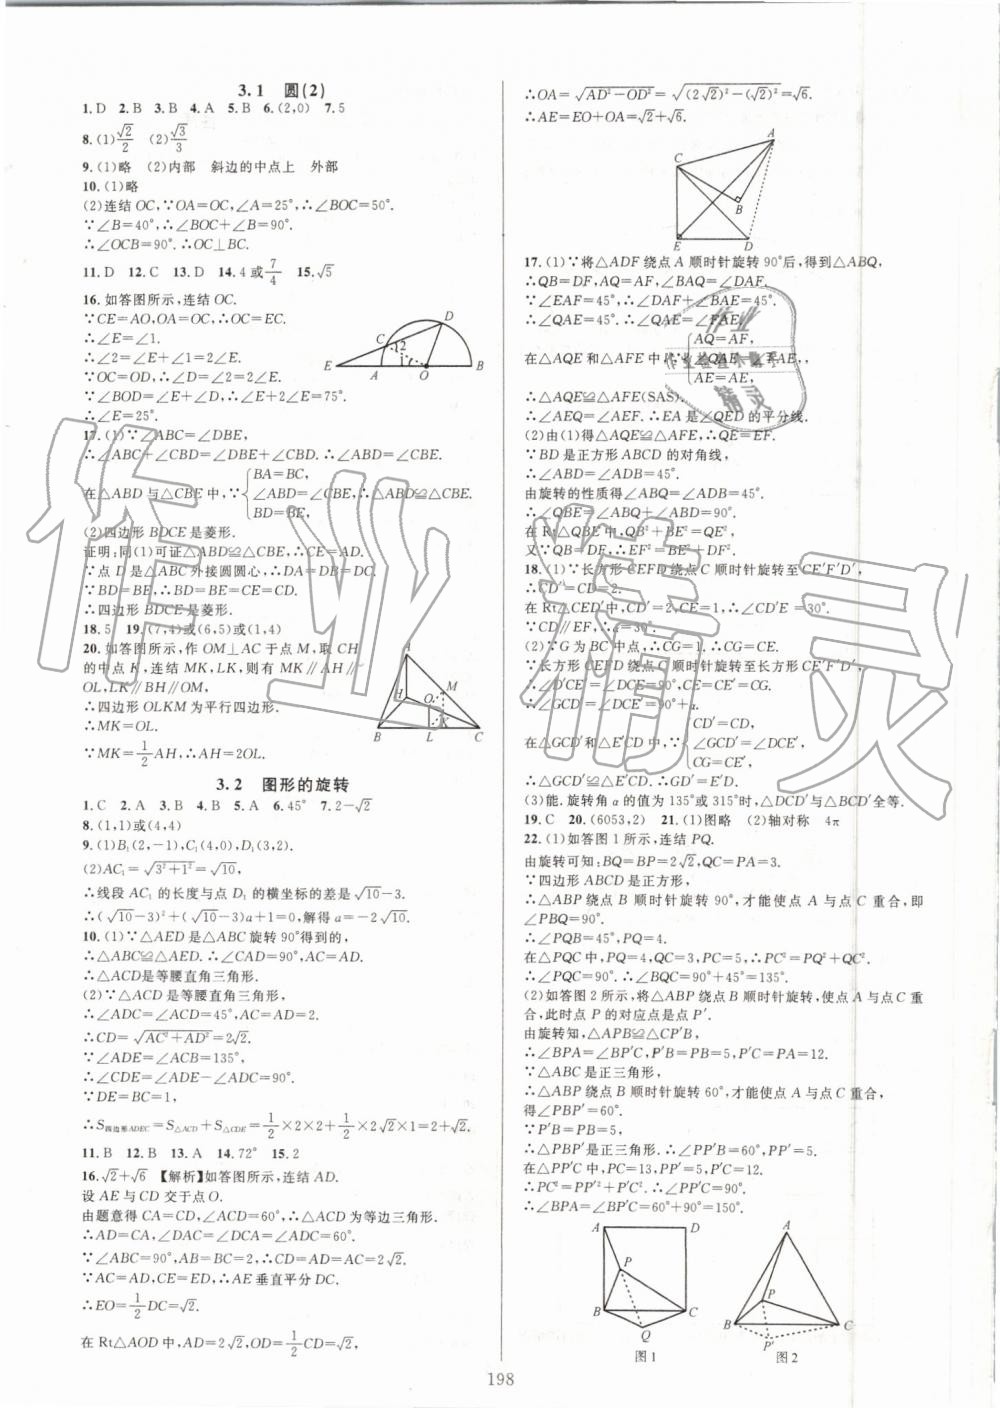 3.1 圆(2)
1.D 2.B 3.B 4.A 5.B 6.(2,0) 7.5
8.(1)√2/2 (2)√3/3
9.(1)略 (2)内部 斜边的中点上 外部
10.(1)略
(2)连结OC,∵OA=OC,∠A=25°,∴∠BOC=50°.
∵∠B=40°,∴∠BOC+∠B=90°.
∴∠OCB=90°.∴OC⊥BC.
11.D 12.C 13.D 14.4或7/4 15.√5
16.如答图所示,连结OC.
∵CE=AO,OA=OC,∴OC=EC.
∴∠E=∠1.
∴∠2=∠E+∠1=2∠E.
∵OC=OD,∴∠D=∠2=2∠E.
∵∠BOD=∠E+∠D,∴∠E+2∠E=75°.
∴∠E=25°.
E A O B C D 1 2
17.(1)∵∠ABC=∠DBE,
∴∠ABC+∠CBD=∠DBE+∠CBD.∴∠ABD=∠CBE.
在△ABD与△CBE中,∵{BA=BC,
∠ABD=∠CBE,∴△ABD≌△CBE.
BD=BE,
(2)四边形BDCE是菱形.
证明:同(1)可证△ABD≌△CBE,∴CE=AD.
∵点D是△ABC外接圆圆心,∴DA=DB=DC.
∵BD=BE,∴BD=BE=CE=CD.
∴四边形BDCE是菱形.
18.5 19.(7,4)或(6,5)或(1,4)
20.如答图所示,作OM⊥AC于点M,取CH
的中点K,连结MK,LK,则有MK∥AH∥
OL,LK∥BH∥OM,
∴四边形OLKM为平行四边形.
∴MK=OL.
∵MK=1/2AH,∴AH=2OL.
A H O M B L K C
3.2 图形的旋转
1.C 2.A 3.B 4.B 5.A 6.45° 7.2-√2
8.(1,1)或(4,4)
9.(1)B₁(2,-1),C₁(4,0),D₁(3,2).
(2)AC₁=√(3²+1²)=√10,
∴线段AC₁的长度与点D₁的横坐标的差是√10-3.
∴(√10-3)²+(√10-3)a+1=0,解得a=-2√10.
10.(1)∵△AED是△ABC旋转90°得到的,
∴△ABC≌△AED.∴∠CAD=90°,AC=AD.
∴△ACD是等腰直角三角形.
(2)∵△ACD是等腰直角三角形,
∴∠ADC=∠ACD=45°,AC=AD=2.
∴CD=√(AC²+AD²)=2√2.
∵∠ADE=∠ACB=135°,
∴∠CDE=∠ADE-∠ADC=90°.
∵DE=BC=1,
∴S四边形ADEC=S△ACD+S△CDE=1/2×2×2+1/2×2√2×1=2+√2.
11.B 12.B 13.A 14.72° 15.2
16.√2+√6 【解析】如答图所示,连结AD.
设AE与CD交于点O.
由题意得CA=CD,∠ACD=60°,∴△ACD为等边三角形.
∴AD=CA,∠DAC=∠DCA=∠ADC=60°.
∵∠ABC=90°,AB=BC=2,∴CD=AD=AC=2√2.
∵AC=AD,CE=ED,∴AE垂直平分DC.
∴EO=1/2DC=√2.
在Rt△AOD中,AD=2√2,OD=1/2CD=√2,
∴OA=√(AD²-OD²)=√((2√2)²-(√2)²)=√6.
∴AE=EO+OA=√2+√6.
A C B E D
17.(1)∵将△ADF绕点A顺时针旋转90°后,得到△ABQ,
∴QB=DF,AQ=AF,∠BAQ=∠DAF.
∵∠EAF=45°,∴∠DAF+∠BAE=45°.
∴∠QAE=45°.∴∠QAE=∠FAE.
在△AQE和△AFE中,∵{AQ=AF,
∠QAE=∠FAE,,
AE=AE,
∴△AQE≌△AFE(SAS).
∴∠AEQ=∠AEF.∴EA是∠QED的平分线.
(2)由(1)得△AQE≌△AFE,∴QE=EF.
∵BD是正方形ABCD的对角线,
∴∠ABD=∠ADB=45°.
由旋转的性质得∠ABQ=∠ADB=45°.
∴∠QBE=∠ABQ+∠ABD=90°.
在Rt△QBE中,QB²+BE²=QE²,
又∵QB=DF,∴EF²=BE²+DF².
18.(1)∵长方形CEFD绕点C顺时针旋转至CE′F′D′,
∴CD′=CD=2.
在Rt△CED′中,CD′=2,CE=1,∴∠CD′E=30°.
∵CD∥EF,∴α=30°.
(2)∵G为BC中点,∴CG=1.∴CG=CE.
∵长方形CEFD绕点C顺时针旋转至长方形CE′F′D′,
∴∠D′CE′=∠DCE=90°,CE=CE′=CG.
∴∠GCD′=∠DCE′=90°+α.
在△GCD′和△E′CD中,∵{CD′=CD,
∠GCD′=∠DCE′,
CG=CE′,
∴△GCD′≌△E′CD.∴GD′=E′D.
(3)能.旋转角α的值为135°或315°时,△DCD′与△BCD′全等.
19.C 20.(6053,2) 21.(1)图略 (2)轴对称 4π
22.(1)如答图1所示,连结PQ.
由旋转可知:BQ=BP=2√2,QC=PA=3.
∵四边形ABCD是正方形,
∴△ABP绕点B顺时针旋转90°,才能使点A与点C重合,即
∠PBQ=90°.
∴∠PQB=45°,PQ=4.
在△PQC中,PQ=4,QC=3,PC=5,∴PC²=PQ²+QC².
∴∠PQC=90°.∴∠BQC=90°+45°=135°.
(2)如答图2所示,将△ABP绕点B顺时针旋转,使点A与点C重
合,此时点P的对应点是点P′.
由旋转知,△APB≌△CP′B,
∴∠BPA=∠BP′C,P′B=PB=5,P′C=PA=12.
∵△ABC是正三角形,
∴△ABP绕点B顺时针旋转60°,才能使点A与点C重合,
得∠PBP′=60°.
∵P′B=PB=5,
∴△PBP′是正三角形.∴∠PP′B=60°,PP′=5.
在△PP′C中,PC=13,PP′=5,P′C=12,
∴PC²=PP′²+P′C².∴∠PP′C=90°.
∴∠BPA=∠BP′C=60°+90°=150°.
A D P B C Q
图1
A P B C P′
图2
198
作业精灵
作业
作业检查小助手
精灵